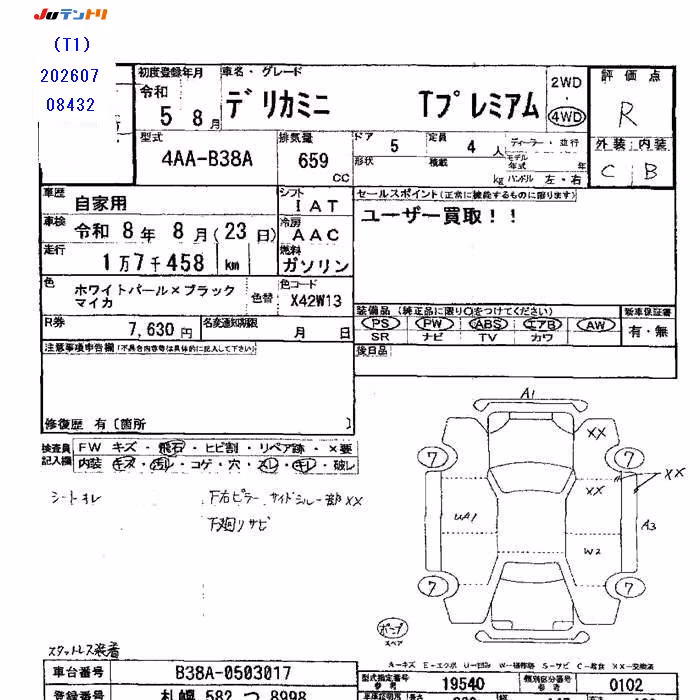 JUテントリ
(T1)
202607
08432
初度登録年月
令和
5 8月
車名・グレード
デリカミニ Tプレミアム
2WD
・
4WD
評価点
R
外装 内装
C B
型式
4AA-B38A
排気量
659
cc
ドア 5
定員 4人
ディーラー・並行
形状
積載
kg
モデル年式 年
ハンドル 左・右
車歴 自家用
車検 令和 8年 8月(23日)
走行 1万7千458 km
シフト IAT
冷房 AAC
燃料 ガソリン
セールスポイント(正常に機能するものに限ります)
ユーザー買取!!
色 ホワイトパール×ブラック
マイカ
色替
色コード
X42W13
R券 7,630円
名変通知期限 月 日
装備品(純正品に限り○をつけてください)
PS PW ABS エアB AW
SR ナビ TV カワ
新車保証書
有・無
後日品
注意事項申告欄(不具合内容等は具体的に記入して下さい)
修復歴 有〔箇所 〕
検査員
記入欄
FW キズ・飛石・ヒビ割・リペア跡・×要
内装 キズ・汚レ・コゲ・穴・スレ・キレ・破レ
下右ピラー サイドシルー部XX
下廻りサビ
A1
XX
7
7
XX
XX
UA1
A3
W2
7
7
スペア
スタットレス装着
A-キズ E-エクボ U-凹み W-補修跡 S-サビ C-腐食 XX-交換済
車台番号 B38A-0503017
型式指定番号
参考
19540
類別区分番号
参考
0102
登録番号 札幌 582 つ 8998